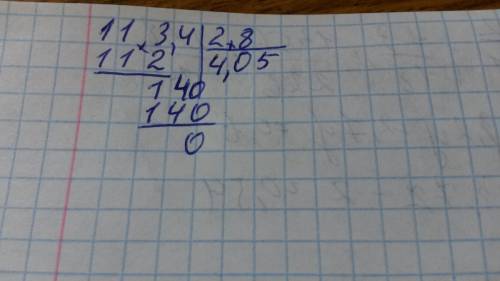 11.3,4 2.8
112 4,05
140
140
0